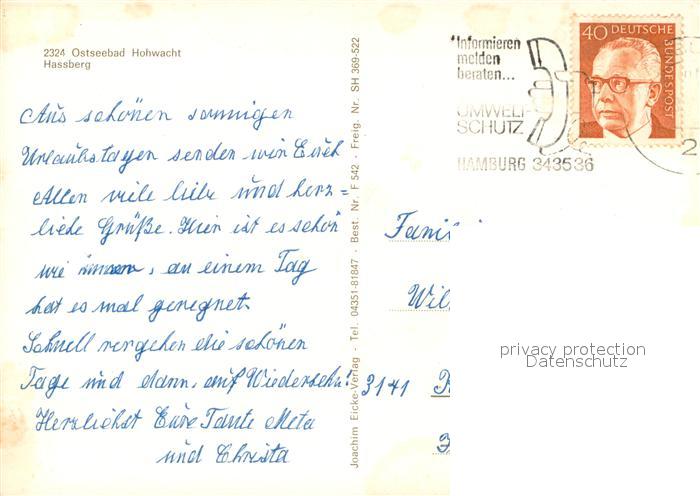 2324 Ostseebad Hohwacht
Hassberg
Aus schönen sonnigen
Urlaubstagen senden wir Euch
Allen viele liebe und herz=
liche Grüße. Hier ist es schön
wie immer, an einem Tag
hat es mal geregnet.
Schnell vergehen die schönen
Tage und dann, auf Wiedersehn!
Herzlichst Eure Tante Meta
und Christa
Joachim Eicke-Verlag · Tel. 04351-81847 · Best. Nr. F 542 · Freig. Nr. SH 369-522
Informieren
melden
beraten...
UMWELT-
SCHUTZ
HAMBURG 343536
40 DEUTSCHE
BUNDESPOST
2
Fami
Wil
3141
privacy protection
Datenschutz